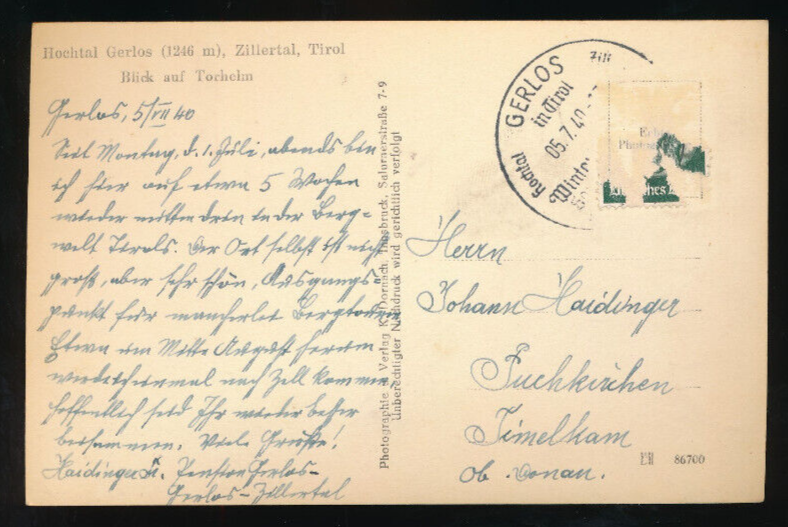 Hochtal Gerlos (1246 m), Zillertal, Tirol
Blick auf Torhelm
Gerlos, 5/VII 40
Seit Montag, d. 1. Juli, abends bin
ich hier auf etwa 5 Wochen
wieder mitten drin in der Berg-
welt Tirols. Der Ort selbst ist nicht
groß, aber sehr schön, Ausgangs-
punkt für mancherlei Bergtouren.
Etwa um Mitte August herum
wieder einmal nach Zell kommen
hoffentlich seid Ihr wieder besser
beisammen. Viele Grüße!
Haidinger Pension Gerlos-
Gerlos-Zillertal
Photographie u. Verlag Innsbruck, Salurnerstraße 7-9
Unberechtigter Nachdruck wird gerichtlich verfolgt
GERLOS
in Tirol
05.7.40
Hochtal
Winter
Zill
Herrn
Johann Haidinger
Puchkirchen
Timelkam
Ob. Donau.
86700